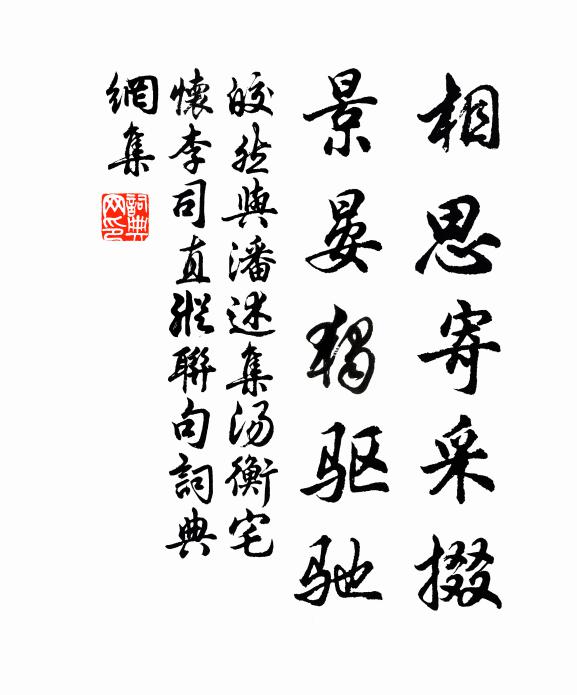 相思寄采掇
景晏独驱驰
皎然與潘述集湯衡宅
懷李司直縱聯句詞典
網集
詞典網印